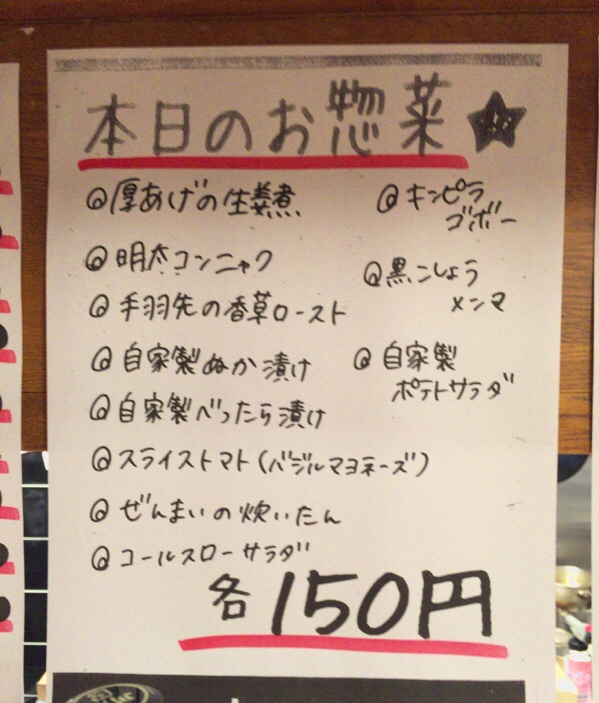 本日のお惣菜★
@厚あげの生姜煮
@明太コンニャク
@手羽先の香草ロースト
@自家製ぬか漬け
@自家製べったら漬け
@スライストマト(バジルマヨネーズ)
@ぜんまいの炊いたん
@コールスローサラダ
@キンピラ
ゴボー
@黒こしょう
メンマ
@自家製
ポテトサラダ
各150円